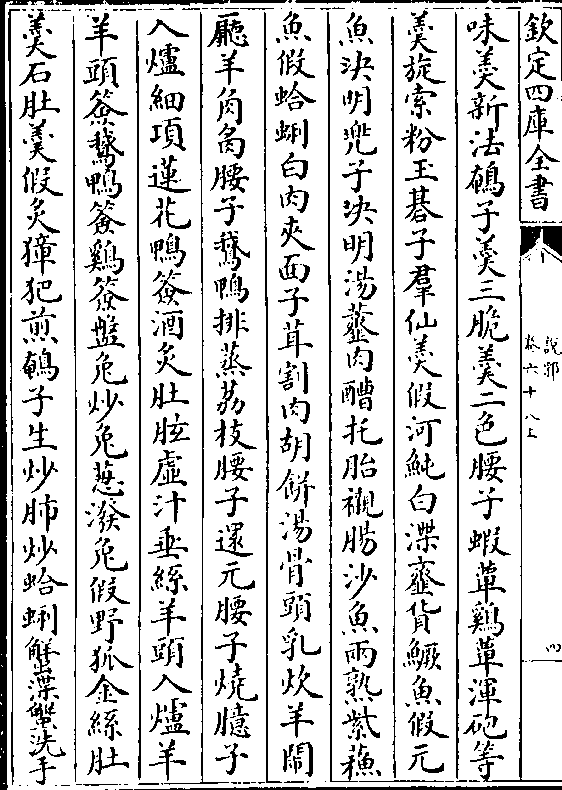 欽定四庫全書
說郛
卷六十八上
四
味羹新法鵪子羹三脆羹二色腰子蝦蕈鷄蕈渾砲等
羹旋索粉玉碁子羣仙羹假河魨白渫齏貨鱖魚假元
魚決明兜子決明湯虀肉醋托胎襯腸沙魚兩熟紫蘓
魚假蛤蜊白肉夾面子茸割肉胡餅湯骨頭乳炊羊閙
廳羊角𦚾腰子鵞鴨排蒸荔枝腰子還元腰子燒臆子
入爐細項蓮花鴨簽酒炙肚胘虛汁垂絲羊頭入爐羊
羊頭簽鵞鴨簽鷄簽盤兔炒兔葱潑兔假野狐金絲肚
羹石肚羹假炙獐犯煎鵪子生炒肺炒蛤蜊蟹渫蟹洗手